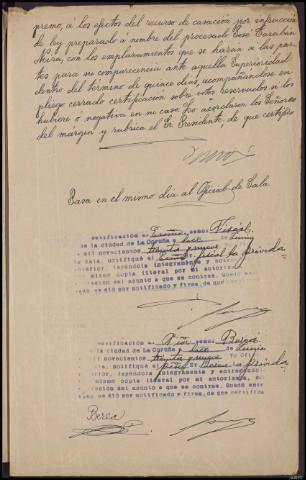 premo, á los efectos del recurso de casación por infracción
de ley preparado á nombre del procesado José Caraban
Neira, con los emplazamientos que se harán á las par-
tes para su comparecencia ante aquella Superioridad
dentro del término de quince dias, acompañándose en
pliego cerrado certificación sobre votos reservados si los
hubiere ó negativa en su caso. Lo acordaron los Señores
del margen y rubrica el Sr. Presidente de que certifico
Pasa en el mismo dia al Oficial de Sala.
Notificación al Señor Fiscal
de la ciudad de La Coruña y doce de Junio
mil novecientos treinta y nueve
notifiqué el Señor Fiscal la providen
anterior, leyéndola íntegramente y entregando
mismo copia literal por mi autorizada,
del asunto á que se contrae. Quedó
dió por notificado y firma, de que
Notificación Sr. Berea
la ciudad de La Coruña y doce de Junio
mil novecientos treinta y nueve Yo
notifiqué Berea la providen
leyéndola íntegramente y entregando
mismo copia literal por mi autorizada,
del asunto á que se contrae. Quedó
dió por notificado y firma, de que certifica
Berea